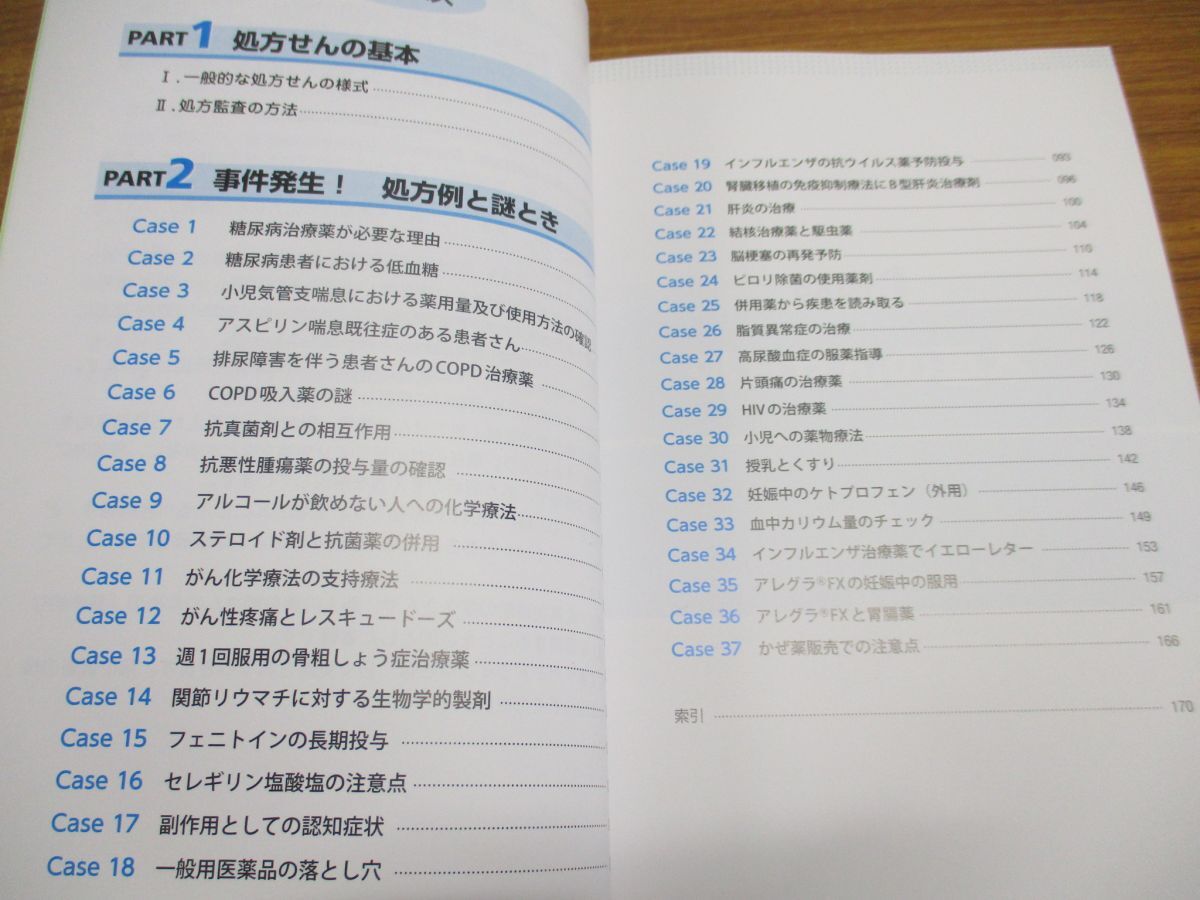 PART 1 処方せんの基本
Ⅰ.一般的な処方せんの様式
Ⅱ.処方監査の方法
PART 2 事件発生！ 処方例と謎とき
Case 1 糖尿病治療薬が必要な理由
Case 2 糖尿病患者における低血糖
Case 3 小児気管支喘息における薬用量及び使用方法の確認
Case 4 アスピリン喘息既往症のある患者さん
Case 5 排尿障害を伴う患者さんのCOPD治療薬
Case 6 COPD吸入薬の謎
Case 7 抗真菌剤との相互作用
Case 8 抗悪性腫瘍薬の投与量の確認
Case 9 アルコールが飲めない人への化学療法
Case 10 ステロイド剤と抗菌薬の併用
Case 11 がん化学療法の支持療法
Case 12 がん性疼痛とレスキュードーズ
Case 13 週1回服用の骨粗しょう症治療薬
Case 14 関節リウマチに対する生物学的製剤
Case 15 フェニトインの長期投与
Case 16 セレギリン塩酸塩の注意点
Case 17 副作用としての認知症状
Case 18 一般用医薬品の落とし穴
Case 19 インフルエンザの抗ウイルス薬予防投与 093
Case 20 腎臓移植の免疫抑制療法にB型肝炎治療剤 096
Case 21 肝炎の治療 100
Case 22 結核治療薬と駆虫薬 104
Case 23 脳梗塞の再発予防 110
Case 24 ピロリ除菌の使用薬剤 114
Case 25 併用薬から疾患を読み取る 118
Case 26 脂質異常症の治療 122
Case 27 高尿酸血症の服薬指導 126
Case 28 片頭痛の治療薬 130
Case 29 HIVの治療薬 134
Case 30 小児への薬物療法 138
Case 31 授乳とくすり 142
Case 32 妊娠中のケトプロフェン（外用） 146
Case 33 血中カリウム量のチェック 149
Case 34 インフルエンザ治療薬でイエローレター 153
Case 35 アレグラ®FXの妊娠中の服用 157
Case 36 アレグラ®FXと胃腸薬 161
Case 37 かぜ薬販売での注意点 166
索引 170